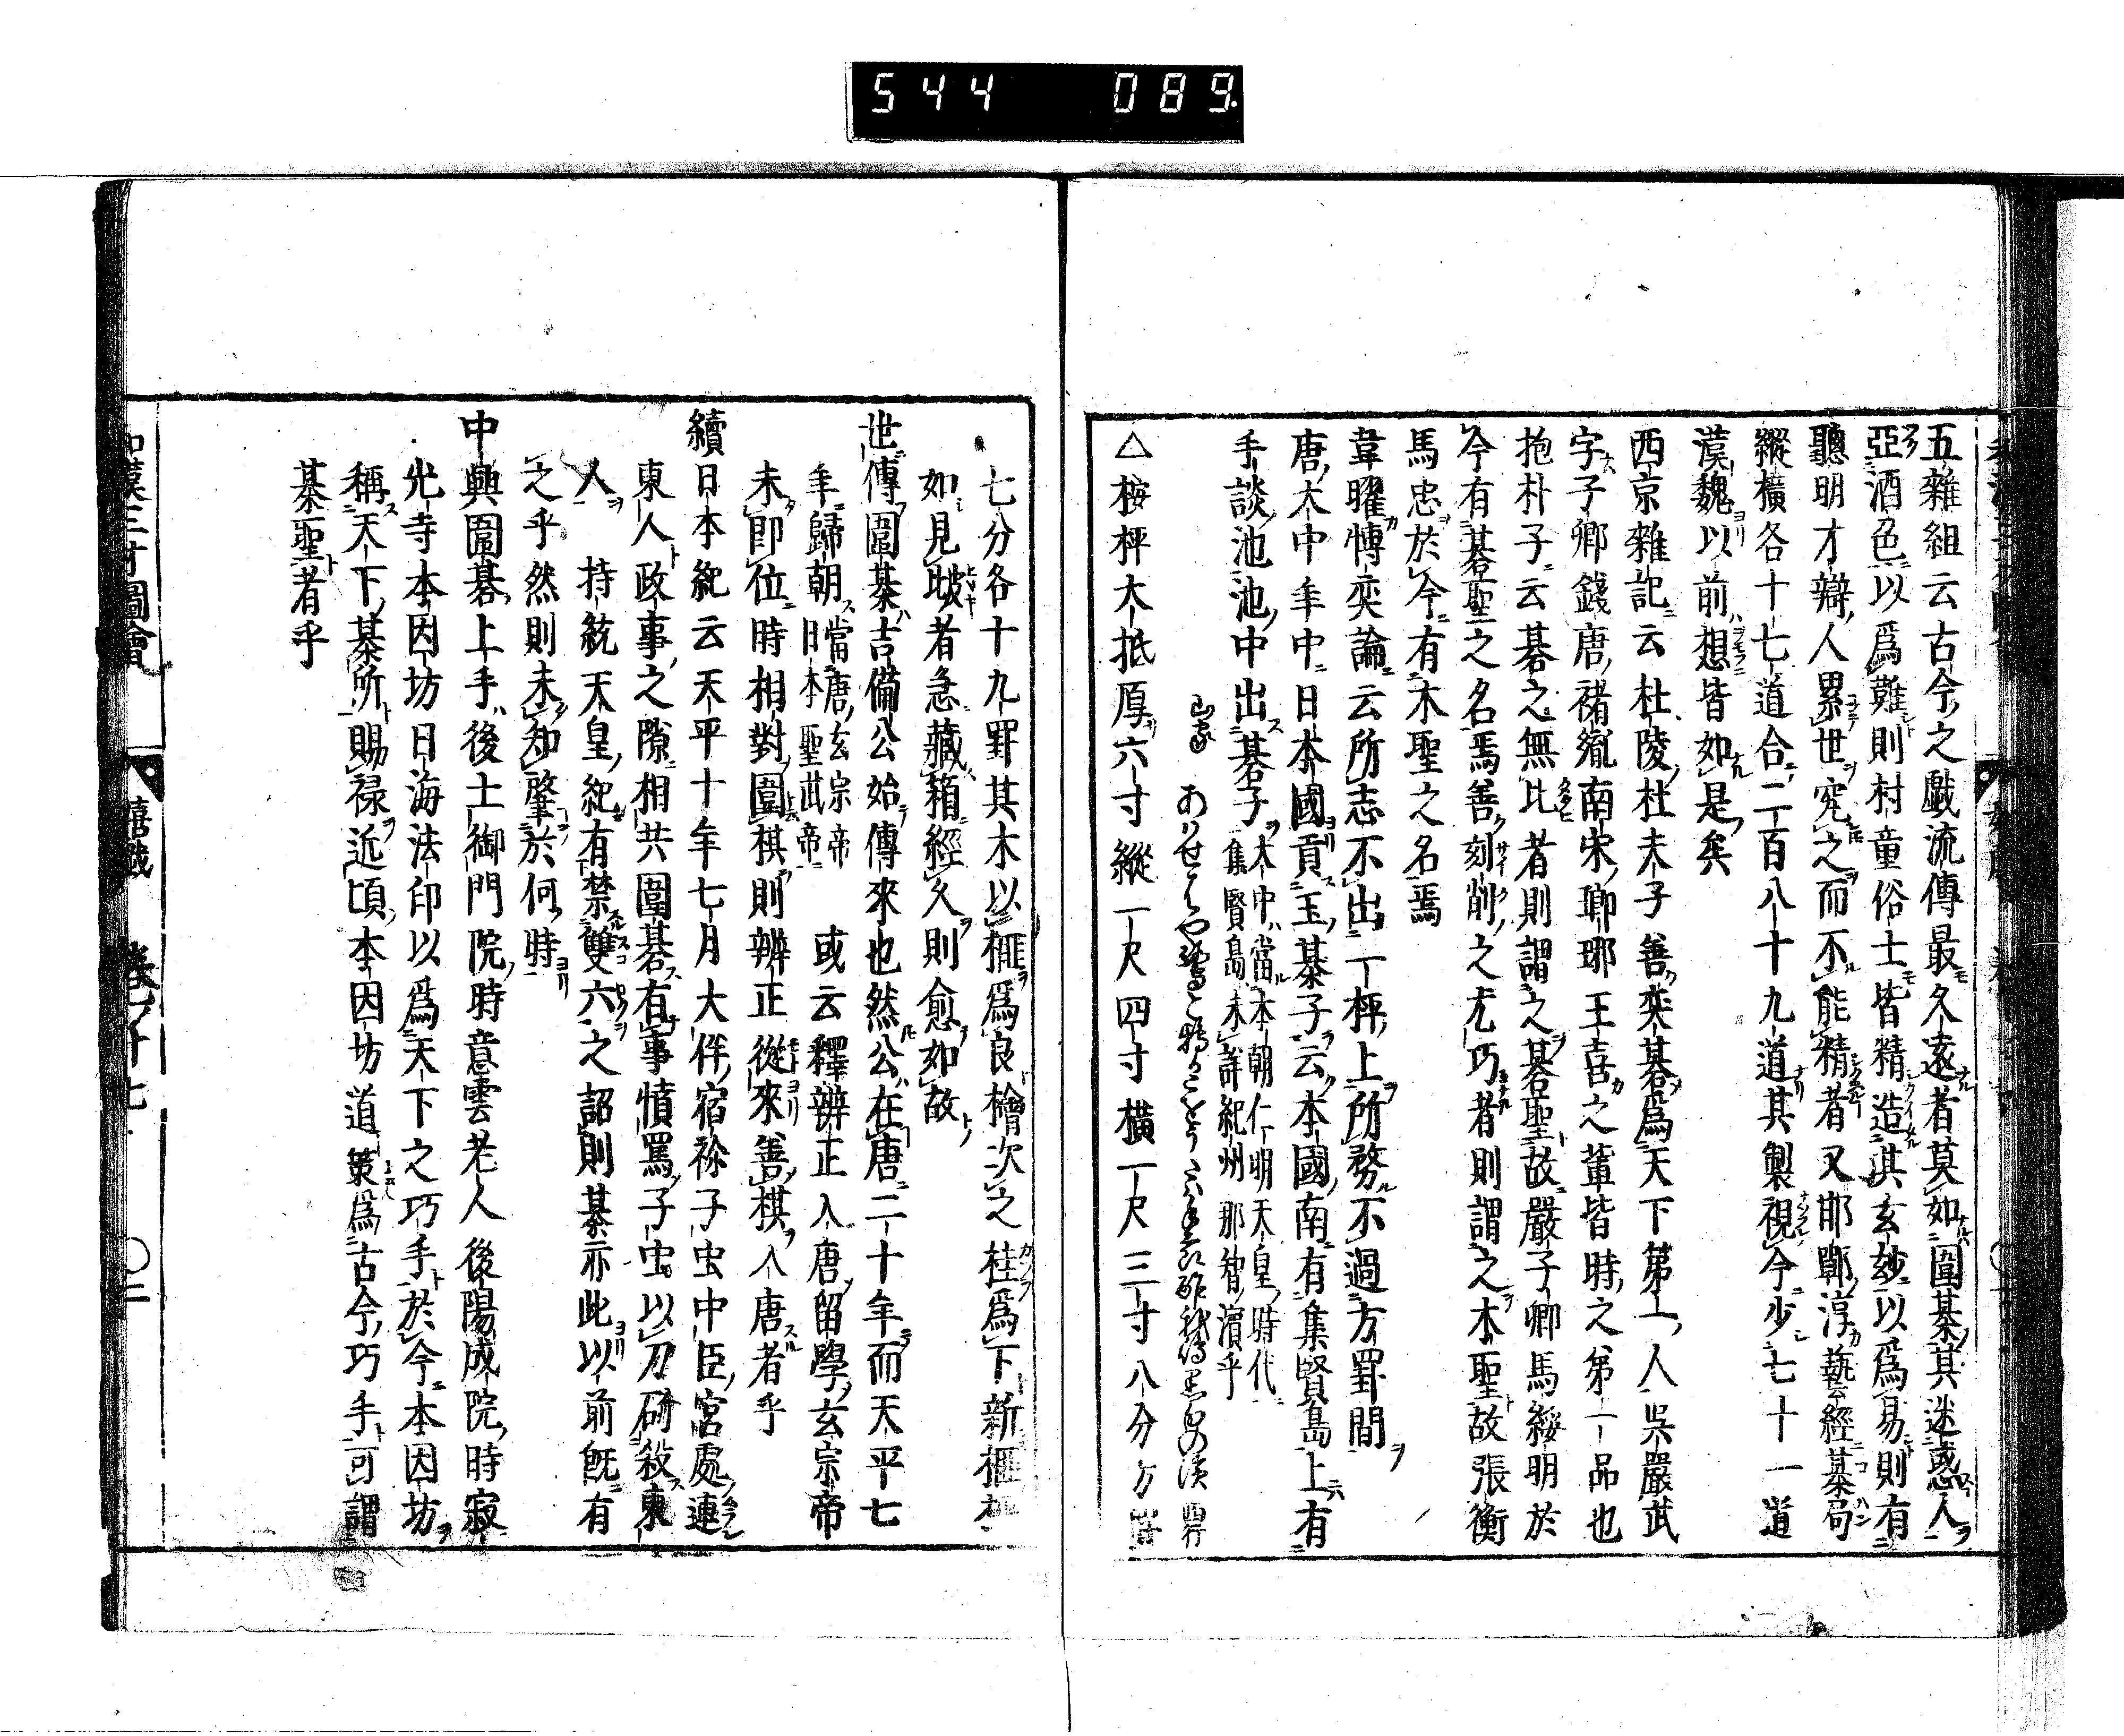 544 089
五雜組云古今之戲流傳最久遠者莫如圍棊其迷惑人
亞酒色以爲難則村童俗士皆精造其玄妙以爲易則有
聰明才辯人累世究之而不能精者又邯鄲淳藝經棊局
縱橫各十七道合二百八十九道其製視今少七十一道
漢魏以前想皆如是矣
西京雜記云杜陵杜夫子善奕棊爲天下第一人呉嚴武
字子卿錢唐褚胤南宋瑯琊王喜之輩皆時之第一品也
抱朴子云棊之無比者則謂之棊聖故嚴子卿馬綏明於
今有棊聖之名焉善刻削之尤巧者則謂之木聖故張衡
馬忠於今有木聖之名焉
韋曜博奕論云所志不出一枰上所務不過方罫間
唐大中年中日本國貢玉棊子云本國南有集賢島上有
手談池池中出棊子大中當本朝仁明天皇時代
集賢島未詳紀州那智濱乎
山家
△桉枰大抵厚六寸縱一尺四寸横一尺三寸八分方罫
七分各十九罫其木以榧爲良檜次之桂爲下新榧枰
如見坡者急藏箱經久則愈如故
世傳圍棊吉備公始傳來也然公在唐二十年而天平七
年歸朝當唐玄宗帝
日本聖武帝或云釋辨正入唐留學玄宗帝
未卽位時相對圍棋則辨正從來善棋入唐者乎
續日本紀云天平十年七月大伴宿祢子虫中臣宮處連
東人政事之隙相共圍碁有事憤罵子虫以刀斫殺東
人 持統天皇紀有禁雙六之詔則棊亦此以前既有
之乎然則未知肇於何時
中興圍碁上手後土御門院時意雲老人後陽成院時寂
光寺本因坊日海法印以爲天下之巧手於今本因坊
稱天下棊所賜禄近頃本因坊道策爲古今巧手可謂
棊聖者乎
和漢三才圖會 嬉戲 卷ノ十七 〇二